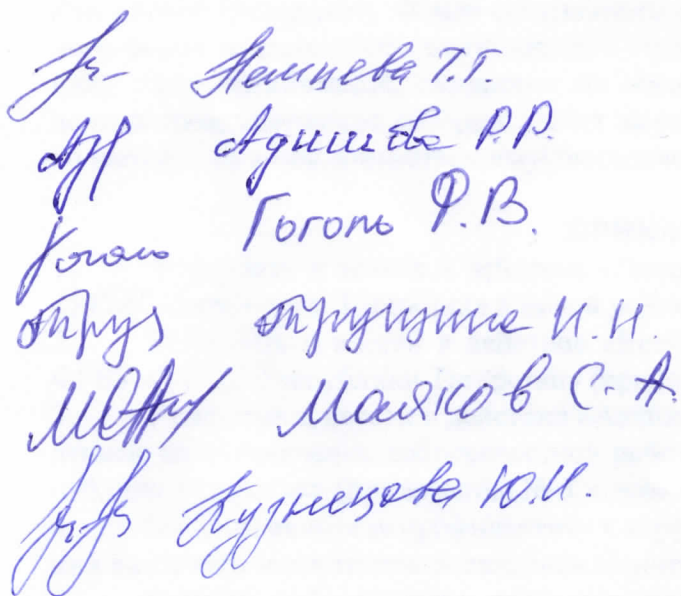 Немцева Т.Г.
Адишева Р.Р.
Гоголь Гоголь Ф.В.
Трущина И Н
Маяков С.А.
Кузнецова Ю.И.